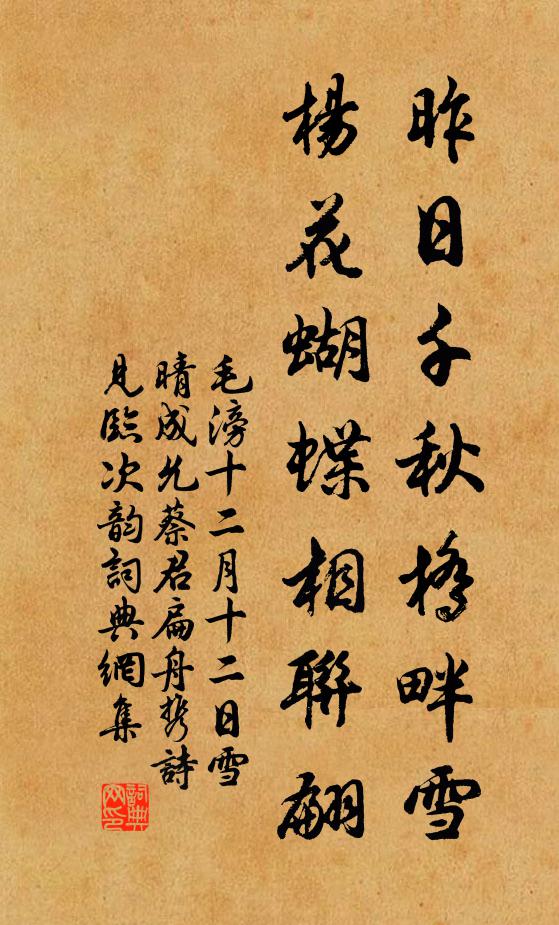 昨日千秋橋畔雪
楊花蝴蝶相聯翩
毛滂十二月十二日雪
晴成允蔡君扁舟携詩
見臨次韵詞典網集
詞典網印